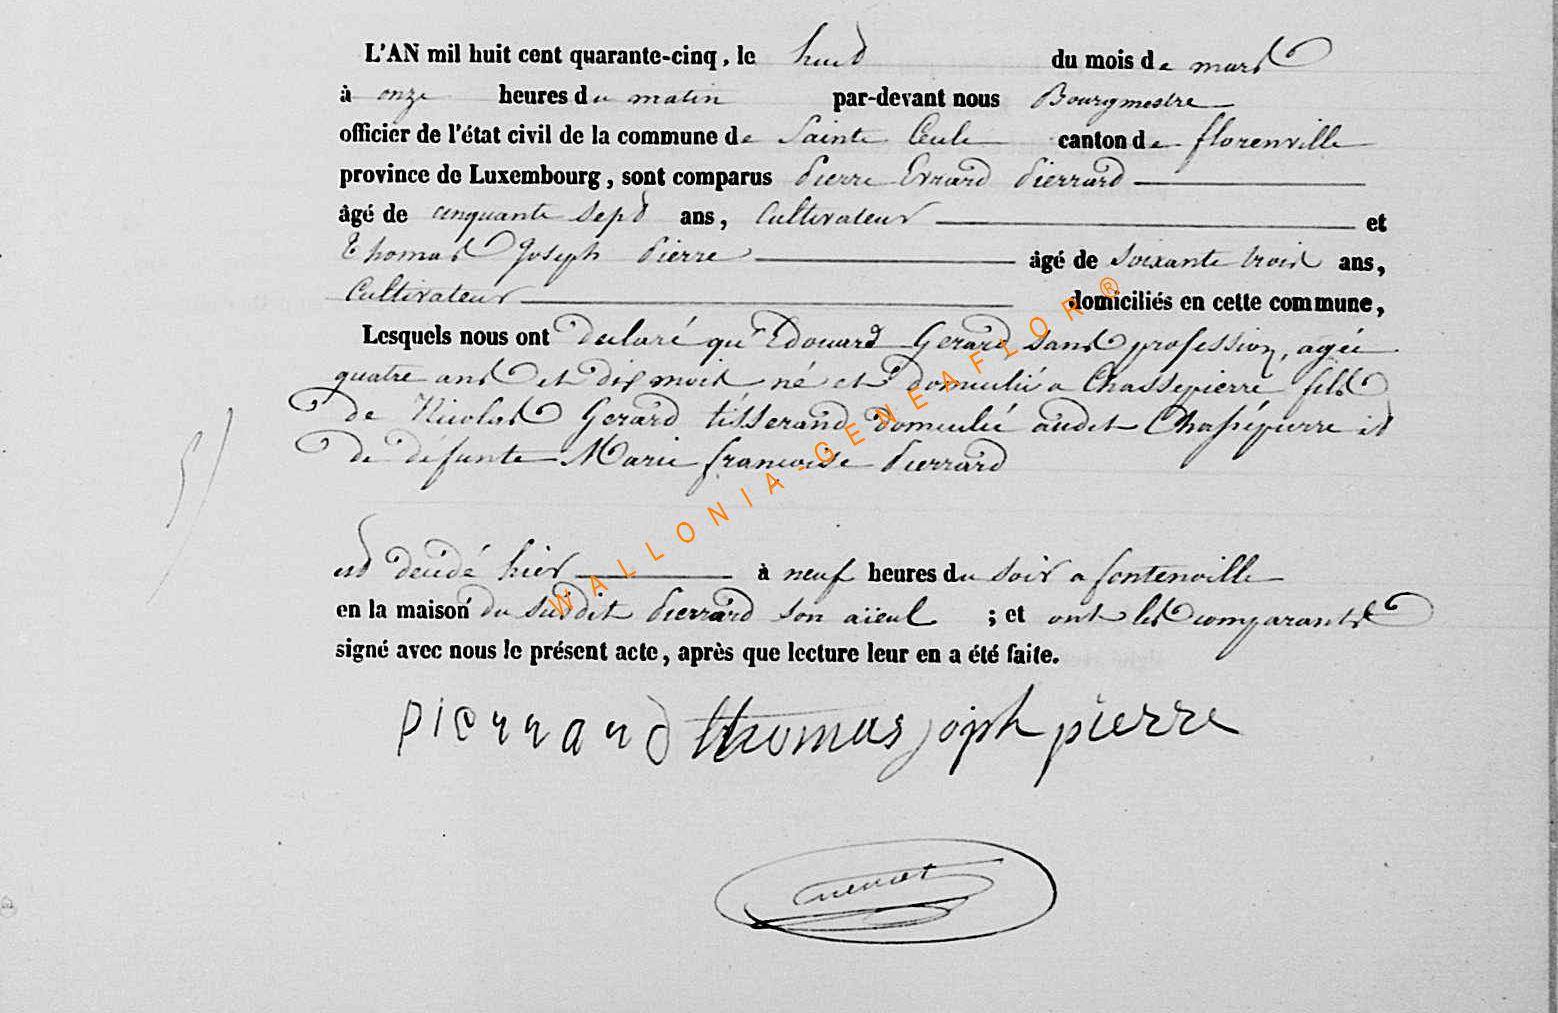 L'AN mil huit cent quarante-cinq, le huit du mois de mars
à onze heures du matin par-devant nous Bourgmestre
officier de l'état civil de la commune de Sainte Cecile canton de florenville
province de Luxembourg, sont comparus Pierre Evrard Pierrard
âgé de cinquante sept ans, Cultivateur et
Thomas Joseph Pierre âgé de soixante trois ans,
Cultivateur domiciliés en cette commune,
Lesquels nous ont declaré qu'Edouard Gerard sans profession, agée
quatre ans et dix mois né et domicilié a Chassepierre fils
de Nicolas Gerard tisserand domicilié audit Chassépierre et
de défunte Marie francoise Pierrard
5
est decidé hier à neuf heures du soir a fontenoille
en la maison du susdit Pierrard son aïeul ; et ont les comparants
signé avec nous le présent acte, après que lecture leur en a été faite.
pierrard thomas joseph pierre
WALLONIA-GENEAFLOR®